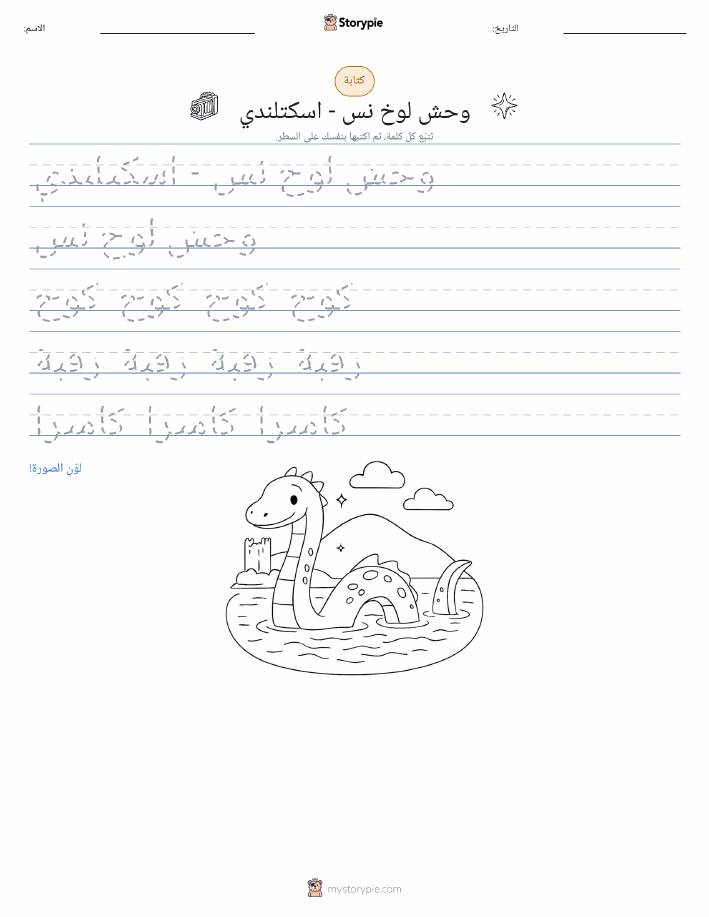 الاسم:
Storypie
التاريخ:
كتابة
وحش لوخ نس - اسكتلندي
تتبّع كل كلمة، ثم اكتبها بنفسك على السطر.
وحش لوخ نس - اسكتلندي
وحش لوخ نس
كوخ كوخ كوخ كوخ
رقبة رقبة رقبة رقبة
كاميرا كاميرا كاميرا
لوّن الصورة!
mystorypie.com